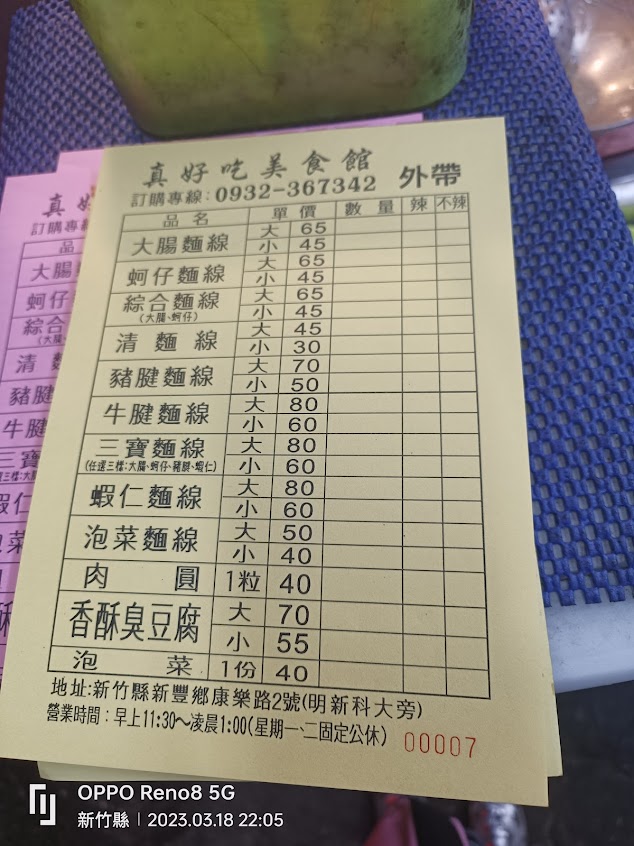 真好吃美食館 外帶
訂購專線：0932-367342
品名 單價 數量 辣 不辣
大腸麵線 大 65
小 45
蚵仔麵線 大 65
小 45
綜合麵線 大 65
(大腸、蚵仔) 小 45
清麵線 大 45
小 30
豬腱麵線 大 70
小 50
牛腱麵線 大 80
小 60
三寶麵線 大 80
(任選三樣:大腸、蚵仔、豬腱、蝦仁) 小 60
蝦仁麵線 大 80
小 60
泡菜麵線 大 50
小 40
肉圓 1粒 40
香酥臭豆腐 大 70
小 55
泡菜 1份 40
地址:新竹縣新豐鄉康樂路2號(明新科大旁)
營業時間：早上11:30～凌晨1:00(星期一、二固定公休)
00007
真好
訂購專線
品
大腸
蚵仔
綜合
清麵
豬腱
牛腱
三寶
蝦仁
泡菜
OPPO Reno8 5G
新竹縣 | 2023.03.18 22:05